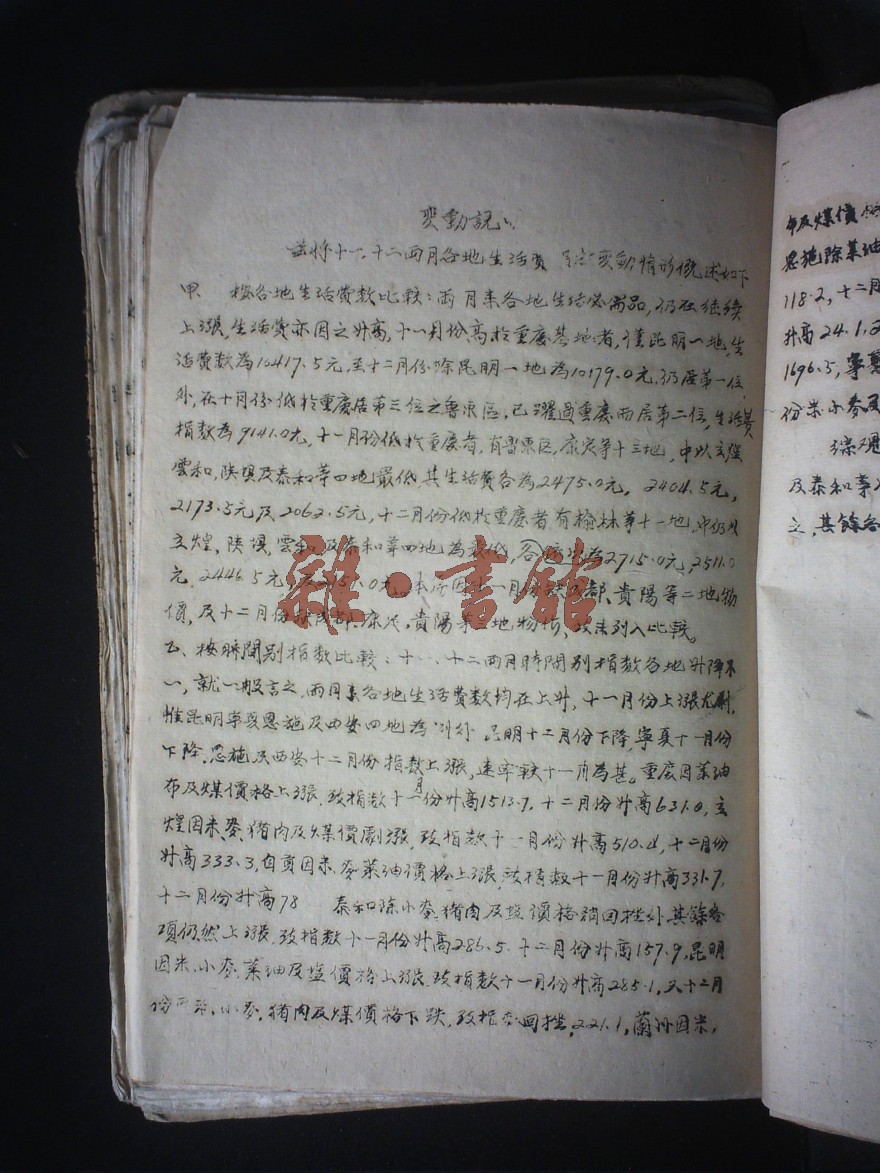 變動說
茲將十一、十二兩月各地生活費 變動情形概述如下
甲、按各地生活費數比較：兩月來各地生活必需品，仍在继续
上漲，生活費亦因之升高，十一月份高於重慶基地者，僅昆明一地，生
活費數為10417.5元，至十二月份除昆明一地為10179.0元，仍居第一位
外，在十月份低於重慶居第三位之魯東區，已躍過重慶而居第二位，生活費
指數為9141.0元，十一月份低於重慶者，有魯東區，康定等十三地，中以立煌
雲和，陝壩及泰和等四地最低其生活費各為2475.0元，2404.5元，
2173.5元及2062.5元，十二月份低於重慶者有榆林等十一地，中仍以
立煌，陝壩，雲和，及泰和等四地為最低，各 為2715.0元，2511.0
元，2446.5元， 元。本 因十一月份缺成都、貴陽等二地物
價，及十二月份缺成都、康定，貴陽等 地物價，故未列入比較。
乙、按時間別指數比較：十一、十二兩月時間別指數各地升降不
一，就一般言之，兩月來各地生活費數均在上升，十一月份上漲尤劇，
惟昆明寧夏恩施及西安四地為例外，昆明十二月份下降，寧夏十一月份
下降，恩施及西安十二月份指數上漲，速率較十一月為甚。重慶因菜油
布及煤價格上漲，致指數十一月份升高1513.7，十二月份升高631.0，立
煌因米麥，豬肉及煤價劇漲，致指數十一月份升高510.4，十二月份
升高333.3，自貢因米，麥菜油價格上漲，致指數十一月份升高331.7，
十二月份升高78 泰和除小麥，豬肉及盐價格稍回挫外，其餘各
項仍然上漲，致指數十一月份升高286.5，十二月份升高157.9，昆明
因米，小麥，菜油及盐價格上漲，致指數十一月份升高285.1，又十二月
份 小麥，豬肉及煤價格下跌，致指數回挫，221.1，蘭州因米，
布及煤價格
恩施除菜油
118.2，十二月
升高24.1，
1696.5，寧夏
份米小麥及
綜觀
及泰和等
之，其餘各
雜·書館